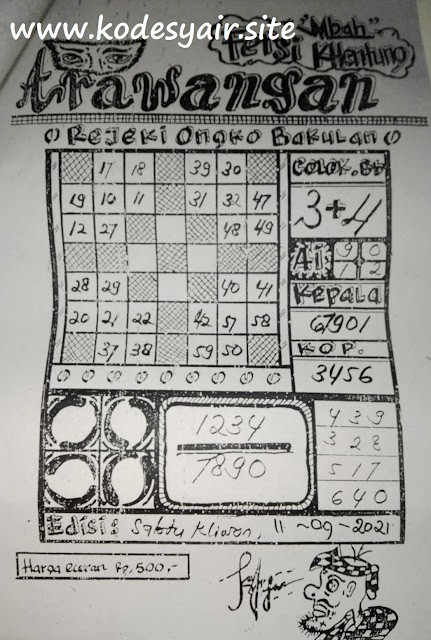 www.kodesyair.site
"Mbah"
Tensi KHentung
Arawangan
Rejeki Ongko Bakulan
17 18 39 30
19 10 11 31 32 47
12 27 48 49
28 29 40 41
20 21 22 42 57 58
37 38 59 50
COLOK.Bt
3+4
AI 9 0
1 2
KEPALA
67901
KOP.
3456
1234
7890
439
328
517
640
Edisi: Sabtu Kliwon, 11-09-2021
Harga eceran Rp. 500,-